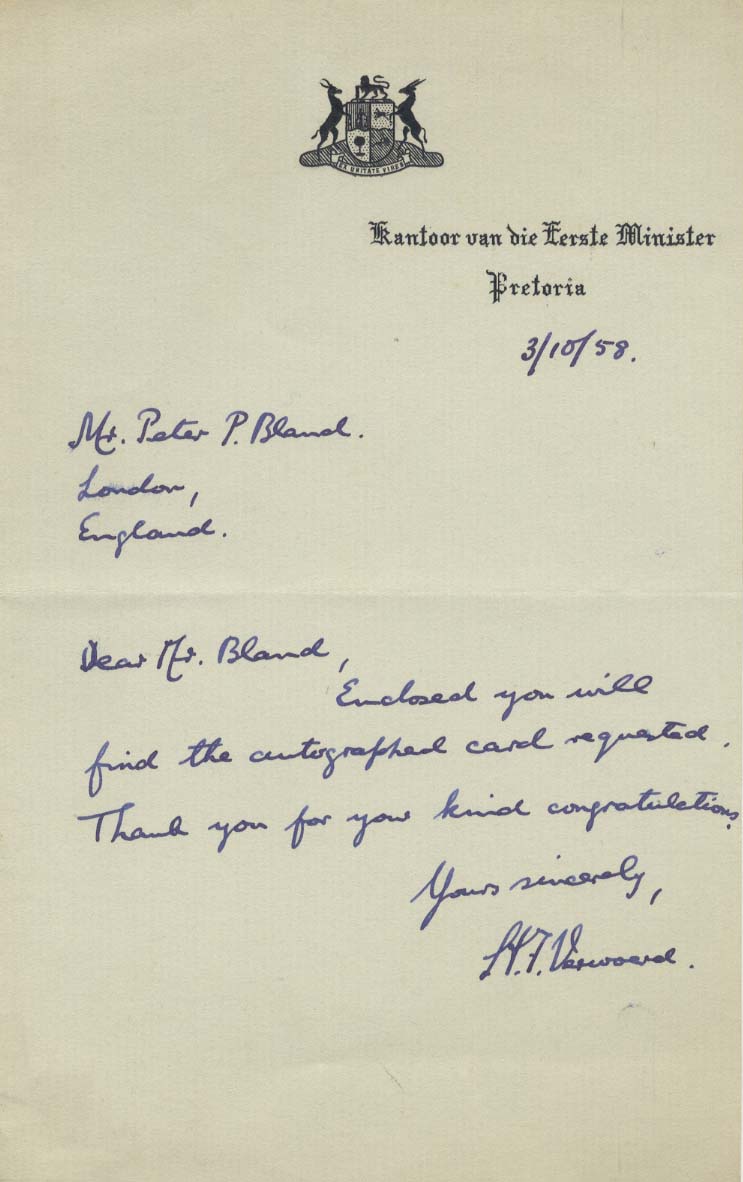 EX UNITATE VIRES
Kantoor van die Eerste Minister
Pretoria
3/10/58.
Mr. Peter P. Bland.
London,
England.
Dear Mr. Bland,
Enclosed you will
find the autographed card requested.
Thank you for your kind congratulations.
Yours sincerely,
H.F. Verwoerd.